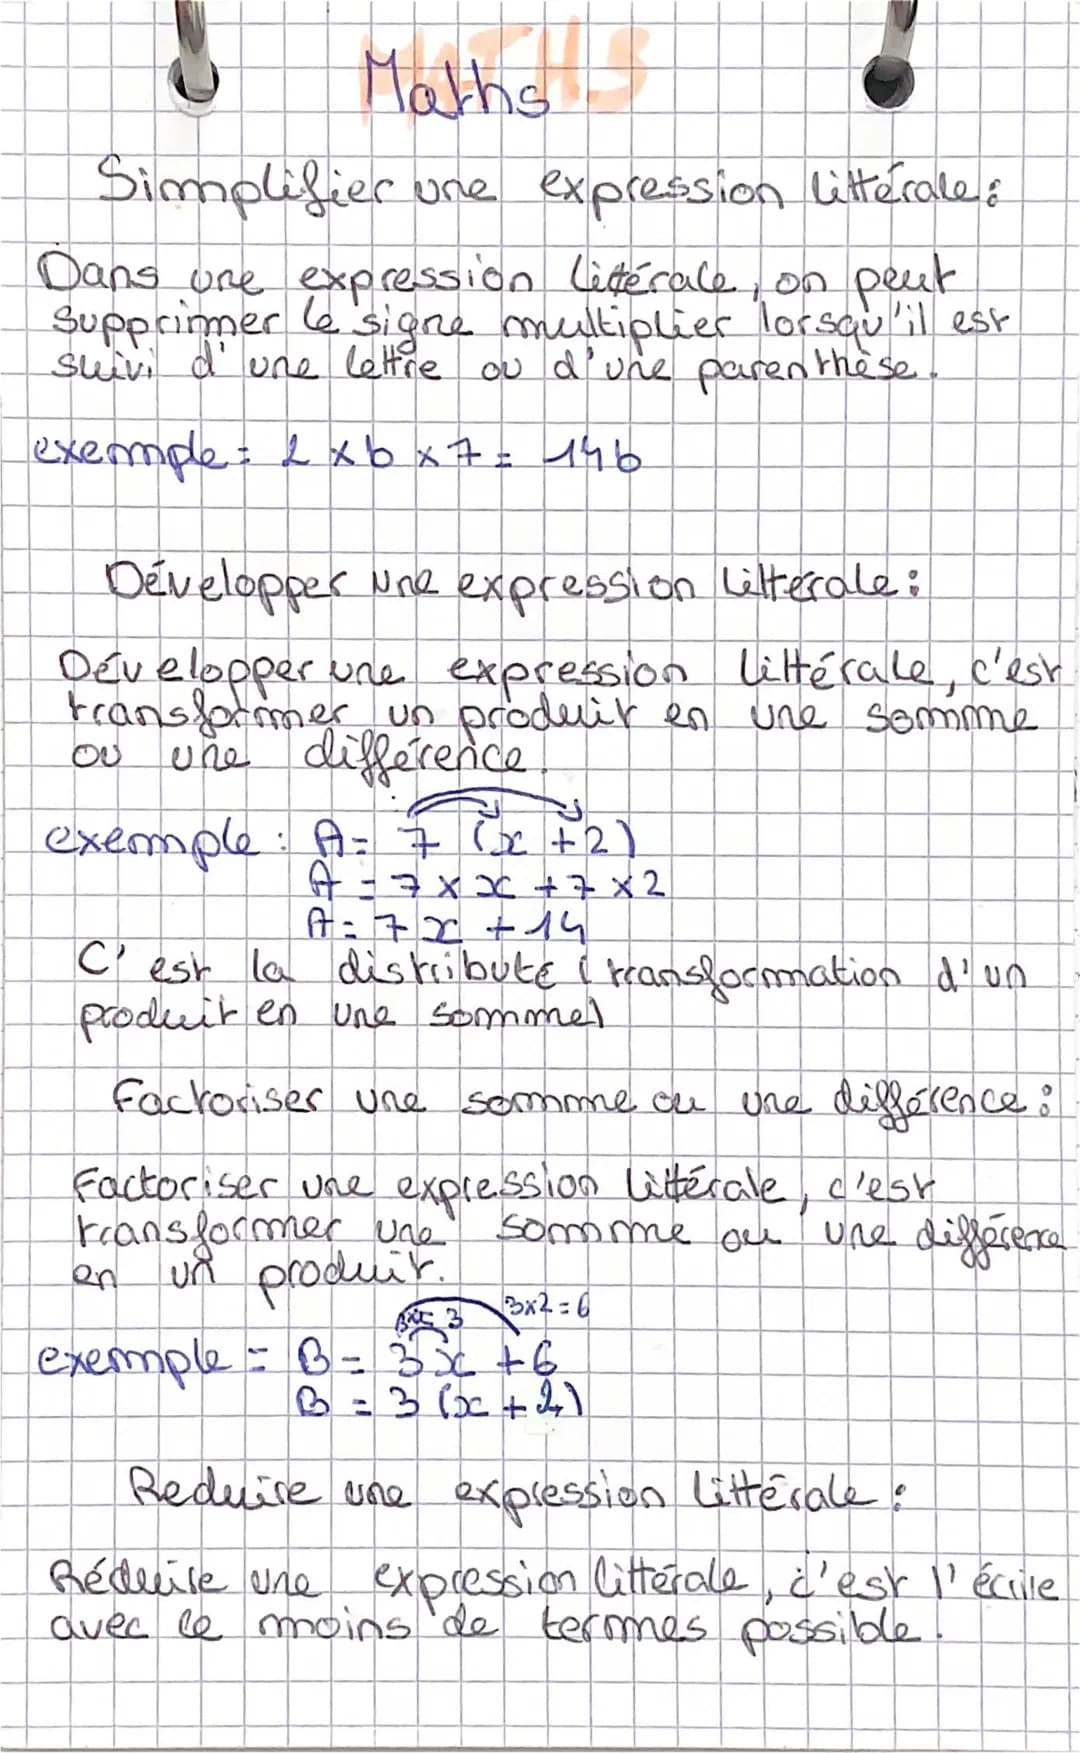 MATHS
Maths
Simplifier une expression littérale :
Dans une expression littérale, on peut
supprimer le signe multiplier lorsqu'il est
suivi d'une lettre ou d'une parenthèse.
exemple = 2 x b x 7 = 14b
Développer une expression littérale :
Développer une expression littérale, c'est
transformer un produit en une somme
ou une différence.
exemple : A = 7 (x + 2)
A = 7 x x + 7 x 2
A = 7x + 14
C'est la distributé (transformation d'un
produit en une somme)
Factoriser une somme ou une différence :
Factoriser une expression littérale, c'est
transformer une somme ou une différence
en un produit.
3 3x2 = 6
exemple = B = 3x + 6
B = 3 (x + 2)
Reduire une expression littérale :
Réduire une expression littérale, c'est l'écrire
avec le moins de termes possible.